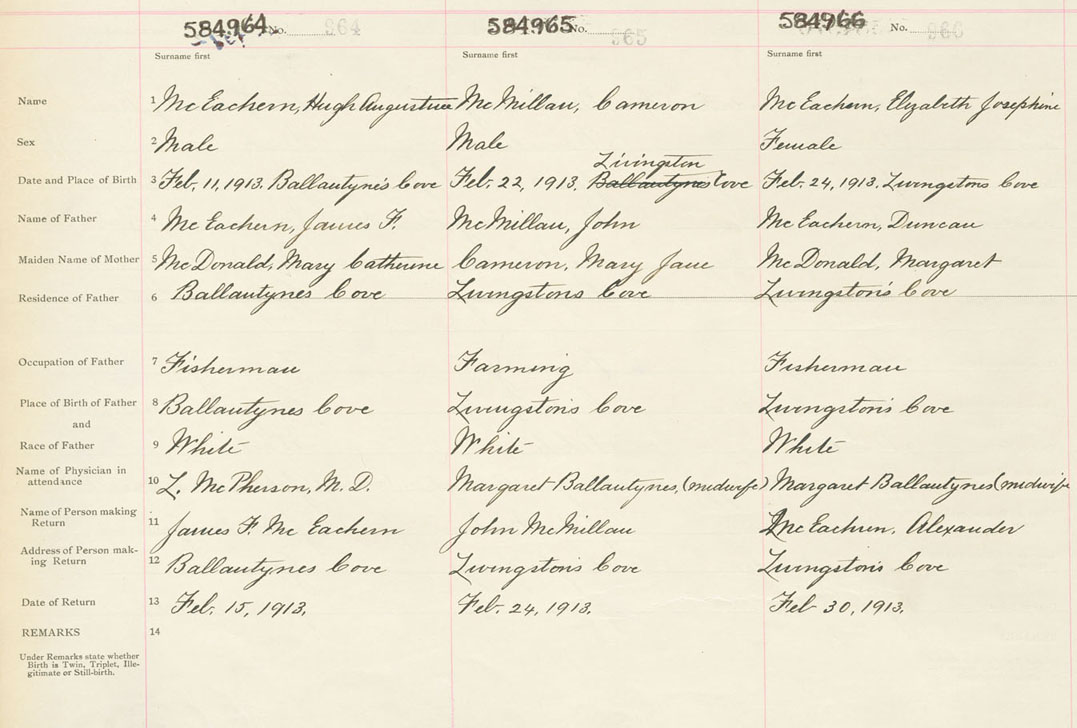 584964 No. 964 584965 No. 965 584966 No. 966
Surname first Surname first Surname first
Name 1 McEachern, Hugh Augustine McMillan, Cameron McEachern, Elizabeth Josephine
Sex 2 Male Male Female
Livingston
Date and Place of Birth 3 Feb. 11, 1913. Ballantyne's Cove Feb. 22, 1913. Ballantynes Cove Feb. 24, 1913. Livingstons Cove
Name of Father 4 McEachern, James F. McMillan, John McEachern, Duncan
Maiden Name of Mother 5 McDonald, Mary Catherine Cameron, Mary Jane McDonald, Margaret
Residence of Father 6 Ballantynes Cove Livingstons Cove Livingston's Cove
Occupation of Father 7 Fisherman Farming Fisherman
Place of Birth of Father 8 Ballantynes Cove Livingston's Cove Livingston's Cove
and
Race of Father 9 White White White
Name of Physician in
attendance 10 L. McPherson, M.D. Margaret Ballantynes, (midwife) Margaret Ballantynes (midwife
Name of Person making
Return 11 James F. McEachern John McMillan McEachern, Alexander
Address of Person mak-
ing Return 12 Ballantynes Cove Livingston's Cove Livingston's Cove
Date of Return 13 Feb. 15, 1913. Feb. 24, 1913. Feb 30, 1913.
REMARKS 14
Under Remarks state whether
Birth is Twin, Triplet, Ille-
gitimate or Still-birth.